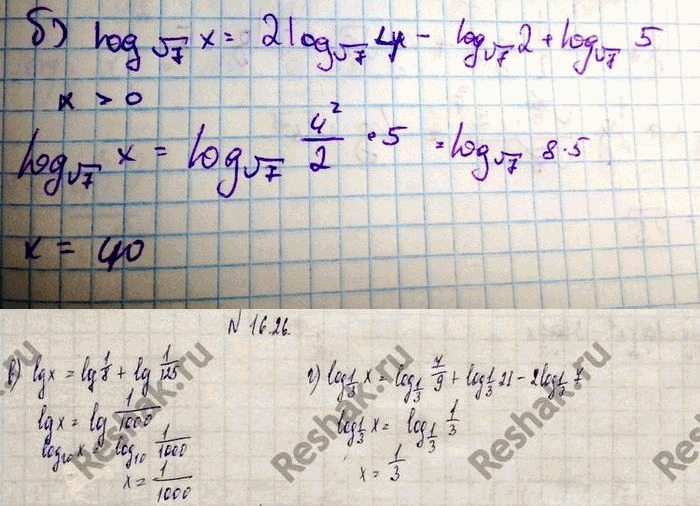 б) log√7 x = 2log√7 4 - log√7 2 + log√7 5
x > 0
log√7 x = log√7 4²/2 · 5 = log√7 8·5
x = 40
N 16.26.
в) lgx = lg 1/8 + lg 1/125
lgx = lg 1/1000
log₁₀x = log₁₀ 1/1000
x = 1/1000
г) log1/3 x = log1/3 7/9 + log1/3 21 - 2log1/3 7
log1/3 x = log1/3 1/3
x = 1/3
Reshak.ru
Reshak.ru
Reshak.ru